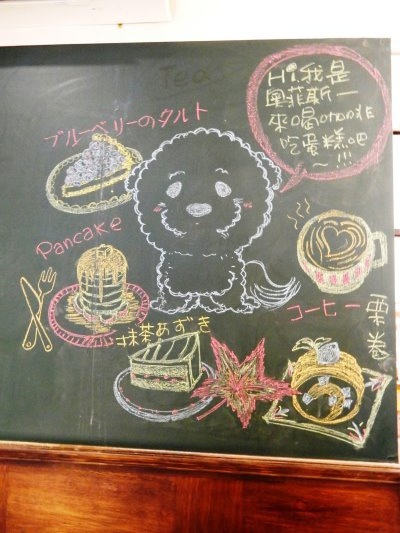 Tea
Hi,我是
奧菲斯一
來喝咖啡
吃蛋糕吧
~!!!
ブルーベリーのタルト
Pancake
コーヒー
栗
巻
抹茶あずき